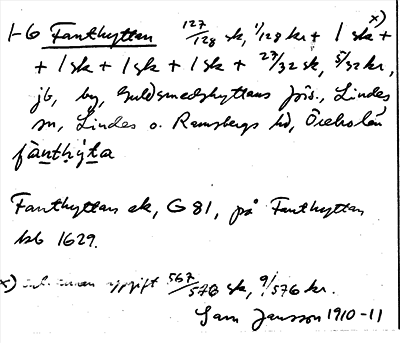 1-6 Fanthyttan 127/128 sk, 1/128 kr + 1 sk x) +
+ 1 sk + 1 sk + 1 sk + 27/32 sk, 5/32 kr,
jb, by, Guldsmedshyttans jbs., Lindes
sn, Lindes o. Ramsbergs hd, Örebro län
fànthy̆ta
Fanthyttan sk, G 81, på Fanthyttan
bsb 1629.
x) annan uppgift 567/576 sk, 9/576 kr.
Sam Jansson 1910-11